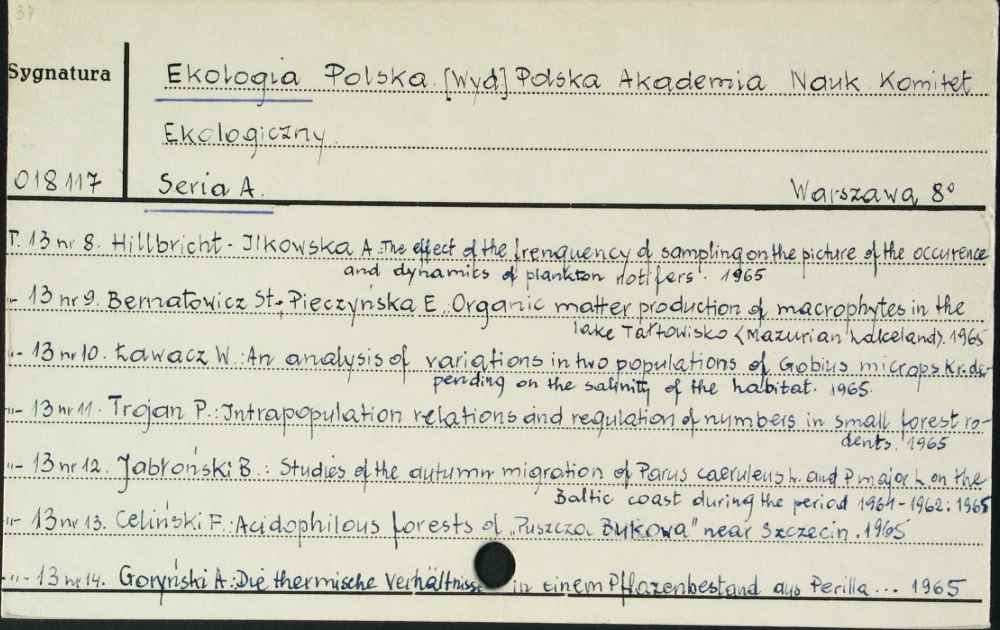 37
Sygnatura
Ekologia Polska. [Wyd] Polska Akademia Nauk Komitet
Ekologiczny.
018117 Seria A. Warszawa 8°
T. 13 nr 8. Hillbricht-Ilkowska A. The effect of the frenquency of sampling on the picture of the occurence
and dynamics of plankton rotifers. 1965
-"- 13 nr 9. Bernatowicz St., Pieczyńska E. Organic matter production of macrophytes in the
lake Tałtowisko (Mazurian Lakeland). 1965
-"- 13 nr 10. Ławacz W.: An analysis of variations in two populations of Gobius microps Kr. de-
pending on the salinity of the habitat. 1965.
-"- 13 nr 11. Trojan P.: Intrapopulation relations and regulation of numbers in small forest ro-
dents. 1965
-"- 13 nr 12. Jabłoński B.: Studies of the autumn migration of Parus caeruleus L. and P major L. on the
Baltic coast during the period 1961-1962: 1965
-"- 13 nr 13. Celiński F.: Acidophilous forests of „Puszcza Bukowa" near Szczecin. 1965
-"- 13 nr 14. Goryński A.: Die thermische Verhältnisse in einem Pflazenbestand aus Perilla... 1965